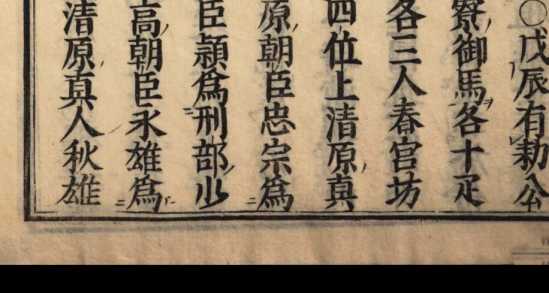 ○戊辰有勅公
寮御馬各十疋
各三人春宮坊
四位上清原真
原朝臣忠宗為
臣頴為刑部少
高朝臣永雄為
清原真人秋雄